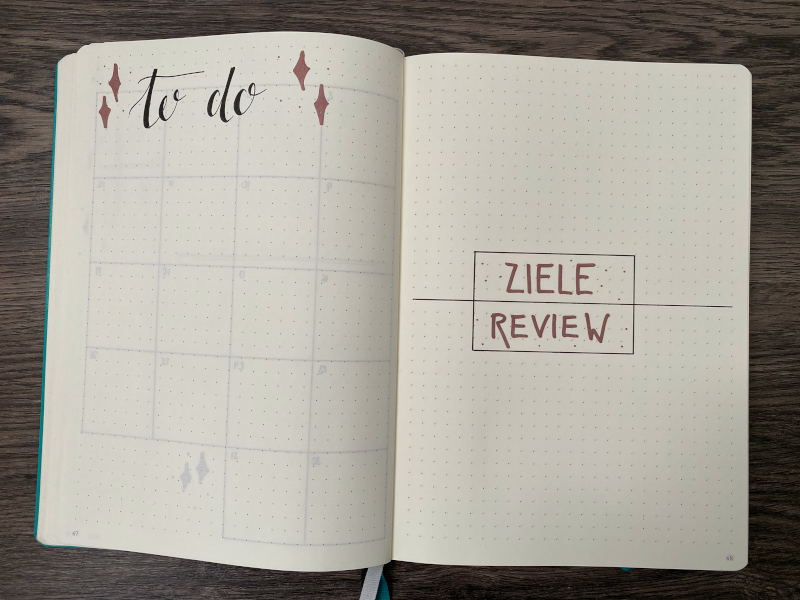 to do
ZIELE
REVIEW
67
68